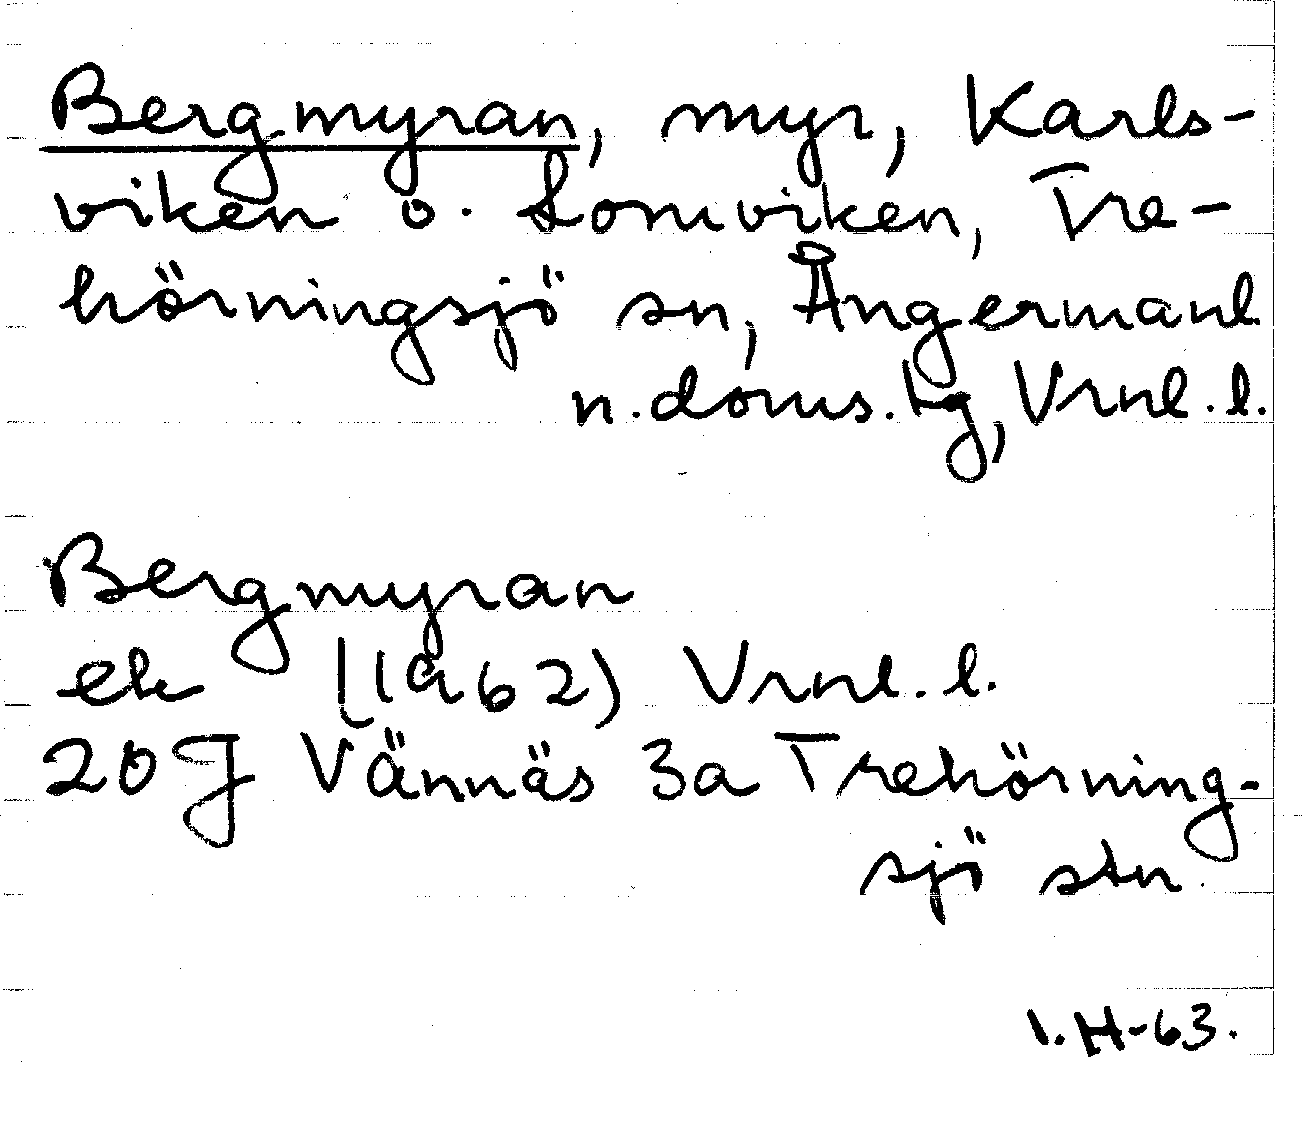 Bergmyran, myr, Karls-
viken o. Lomviken, Tre-
hörningsjö sn, Ångermanl.
n. doms. tg, Vrnl. l.
Bergmyran
ek (1962) Vrnl. l.
20J Vännäs 3a Trehörning-
sjö stn.
I.H-63.